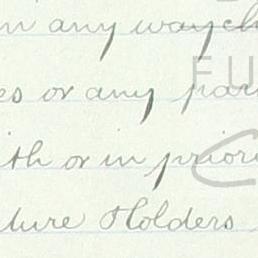 in any way ch
es or any par
ith or in priori
ture Holders
FU